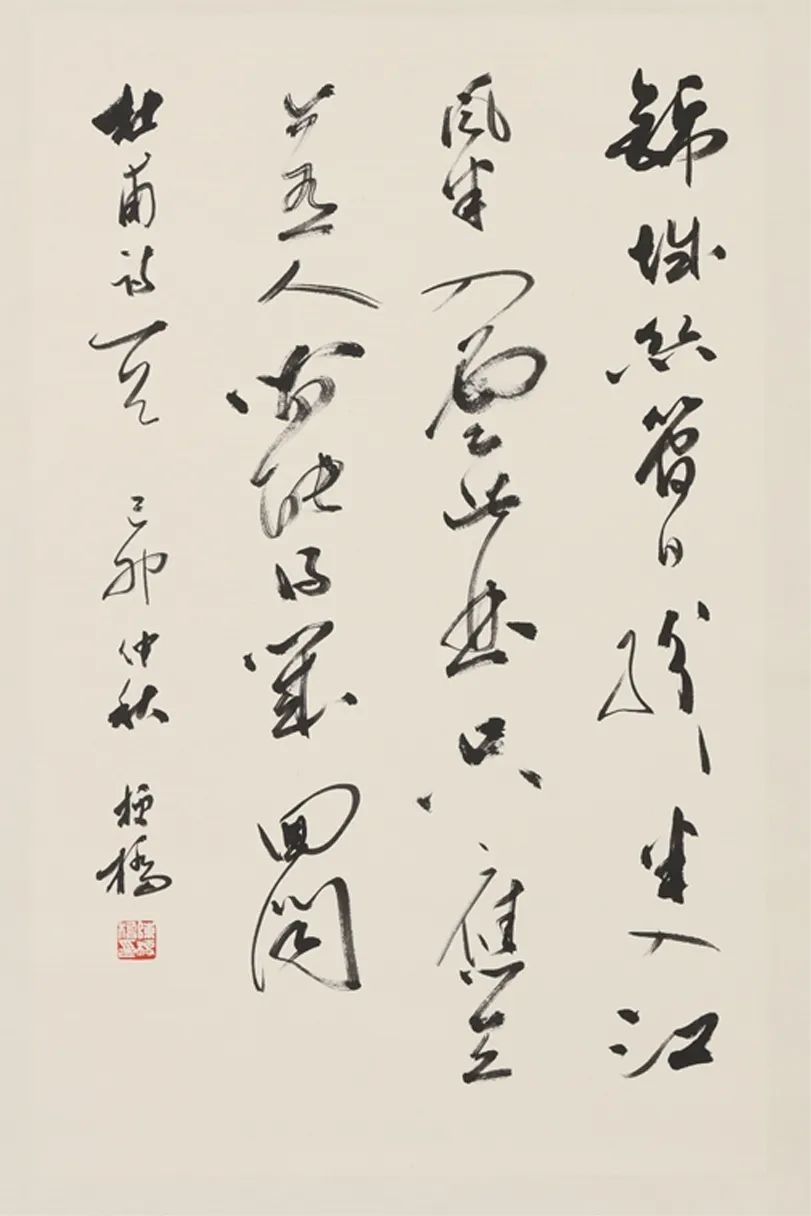 錦城絲管日紛々半入江
風半入雲此曲只應天
上有人間能得幾回聞
杜甫詩一首 己卯仲秋 橋